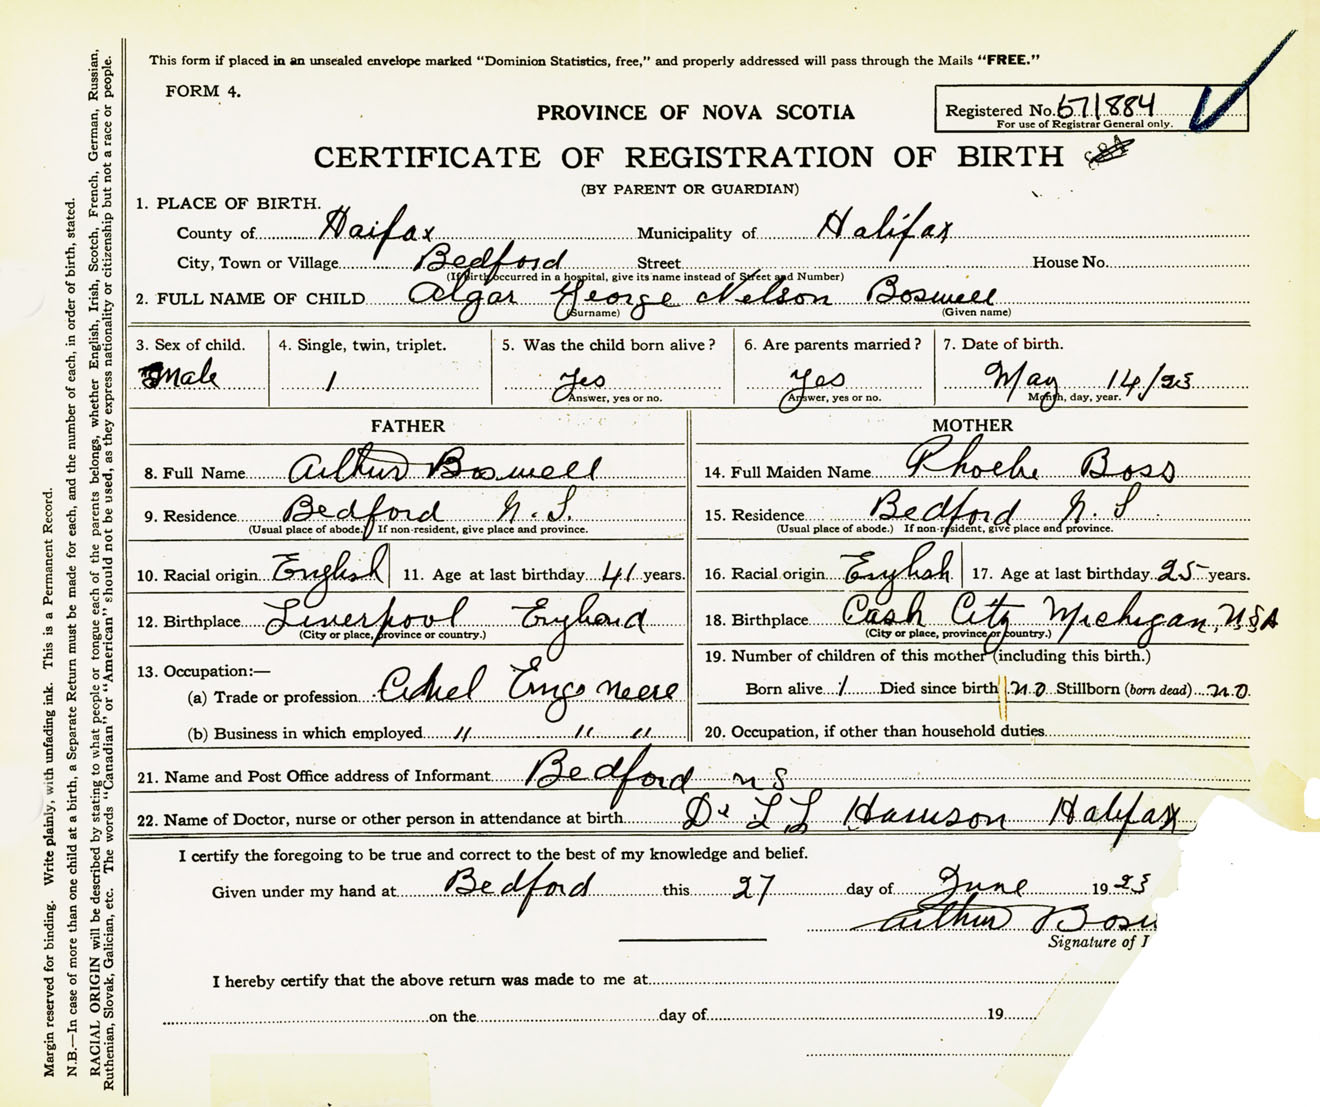 This form if placed in an unsealed envelope marked "Dominion Statistics, free," and properly addressed will pass through the Mails "FREE."
FORM 4.
PROVINCE OF NOVA SCOTIA
Registered No. 671884
For use of Registrar General only.
CERTIFICATE OF REGISTRATION OF BIRTH
(BY PARENT OR GUARDIAN)
1. PLACE OF BIRTH.
County of Haifax Municipality of Halifax
City, Town or Village Bedford Street House No.
(If birth occurred in a hospital, give its name instead of Street and Number)
2. FULL NAME OF CHILD Algar George Nelson Boswell
(Surname) (Given name)
3. Sex of child. 4. Single, twin, triplet. 5. Was the child born alive? 6. Are parents married? 7. Date of birth.
Male 1 Yes Yes May 14/23
Answer, yes or no. Answer, yes or no. Month, day, year.
FATHER MOTHER
8. Full Name Arthur Boswell 14. Full Maiden Name Phoebe Boss
9. Residence Bedford N.S. 15. Residence Bedford N.S
(Usual place of abode.) If non-resident, give place and province. (Usual place of abode.) If non-resident, give place and province.
10. Racial origin English 11. Age at last birthday 41 years. 16. Racial origin English 17. Age at last birthday 25 years.
12. Birthplace Liverpool England 18. Birthplace Cash City Michigan, USA
(City or place, province or country.) (City or place, province or country.)
13. Occupation:— 19. Number of children of this mother (including this birth.)
(a) Trade or profession Born alive 1 Died since birth no Stillborn (born dead) no.
(b) Business in which employed " " " 20. Occupation, if other than household duties
21. Name and Post Office address of Informant Bedford NS
22. Name of Doctor, nurse or other person in attendance at birth Dr Halifax
I certify the foregoing to be true and correct to the best of my knowledge and belief.
Given under my hand at Bedford this 27 day of June 1923
Arthur
Signature of
I hereby certify that the above return was made to me at
on the day of 19
Margin reserved for binding. Write plainly, with unfading ink. This is a Permanent Record.
N.B.—In case of more than one child at a birth, a Separate Return must be made for each, and the number of each, in order of birth, stated.
RACIAL ORIGIN will be described by stating to what people or tongue each of the parents belongs, whether English, Irish, Scotch, French, German, Russian,
Ruthenian, Slovak, Galician, etc. The words "Canadian" or "American" should not be used, as they express nationality or citizenship but not a race or people.